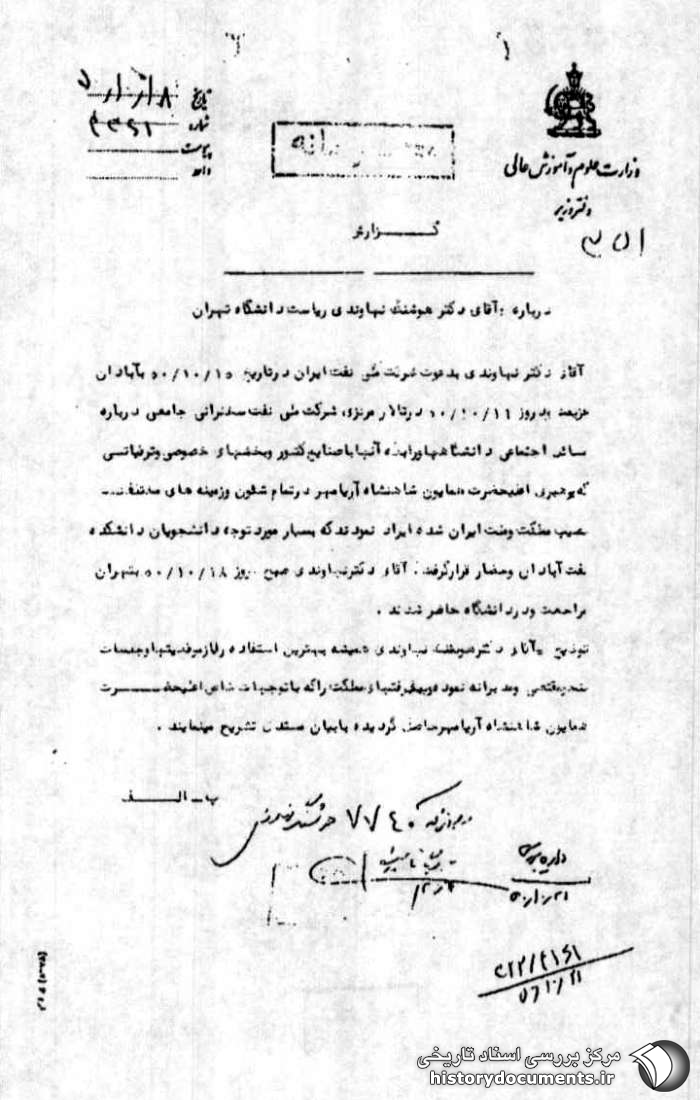 تاریخ
شماره
پیوست
وزارت علوم و آموزش عالی
دفتر وزیر
محرمانه
گزارش
درباره : آقای دکتر هوشنگ نهاوندی ریاست دانشگاه تهران
آقای دکتر نهاوندی بدعوت شرکت ملی نفت ایران در تاریخ ۵۰/۱۰/۱۵ بآبادان
عزیمت روز ۵۰/۱۰/۱۶ در تالار مرکزی شرکت ملی نفت سخنرانی جامعی درباره
مسائل اجتماعی دانشگاهها و رابطه آنها با صنایع کشور و بخشهای خصوصی و ترقیاتی
که برهبری اعلیحضرت همایون شاهنشاه آریامهر در تمام شئون و زمینه های مختلف
نصیب مملکت و ملت ایران شده ایراد نمودند که بسیار مورد توجه دانشجویان دانشکده
نفت آبادان و حضار قرار گرفت . آقای دکتر نهاوندی صبح روز ۵۰/۱۰/۱۸ بتهران
مراجعت و در دانشگاه حاضر شدند .
توضیح : آقای دکتر هوشنگ نهاوندی همیشه بهترین استفاده را از موقعیتها و جلسات
نموده و پیشرفتهای مملکت را که با توجهات خاص اعلیحضرت
همایون شاهنشاه آریامهر حاصل گردیده با بیان مستدل تشریح مینمایند .
ب ـ الف
۷۷۴۰ هوشنگ نهاوندی
مرکز بررسی اسناد تاریخی
historydocuments.ir